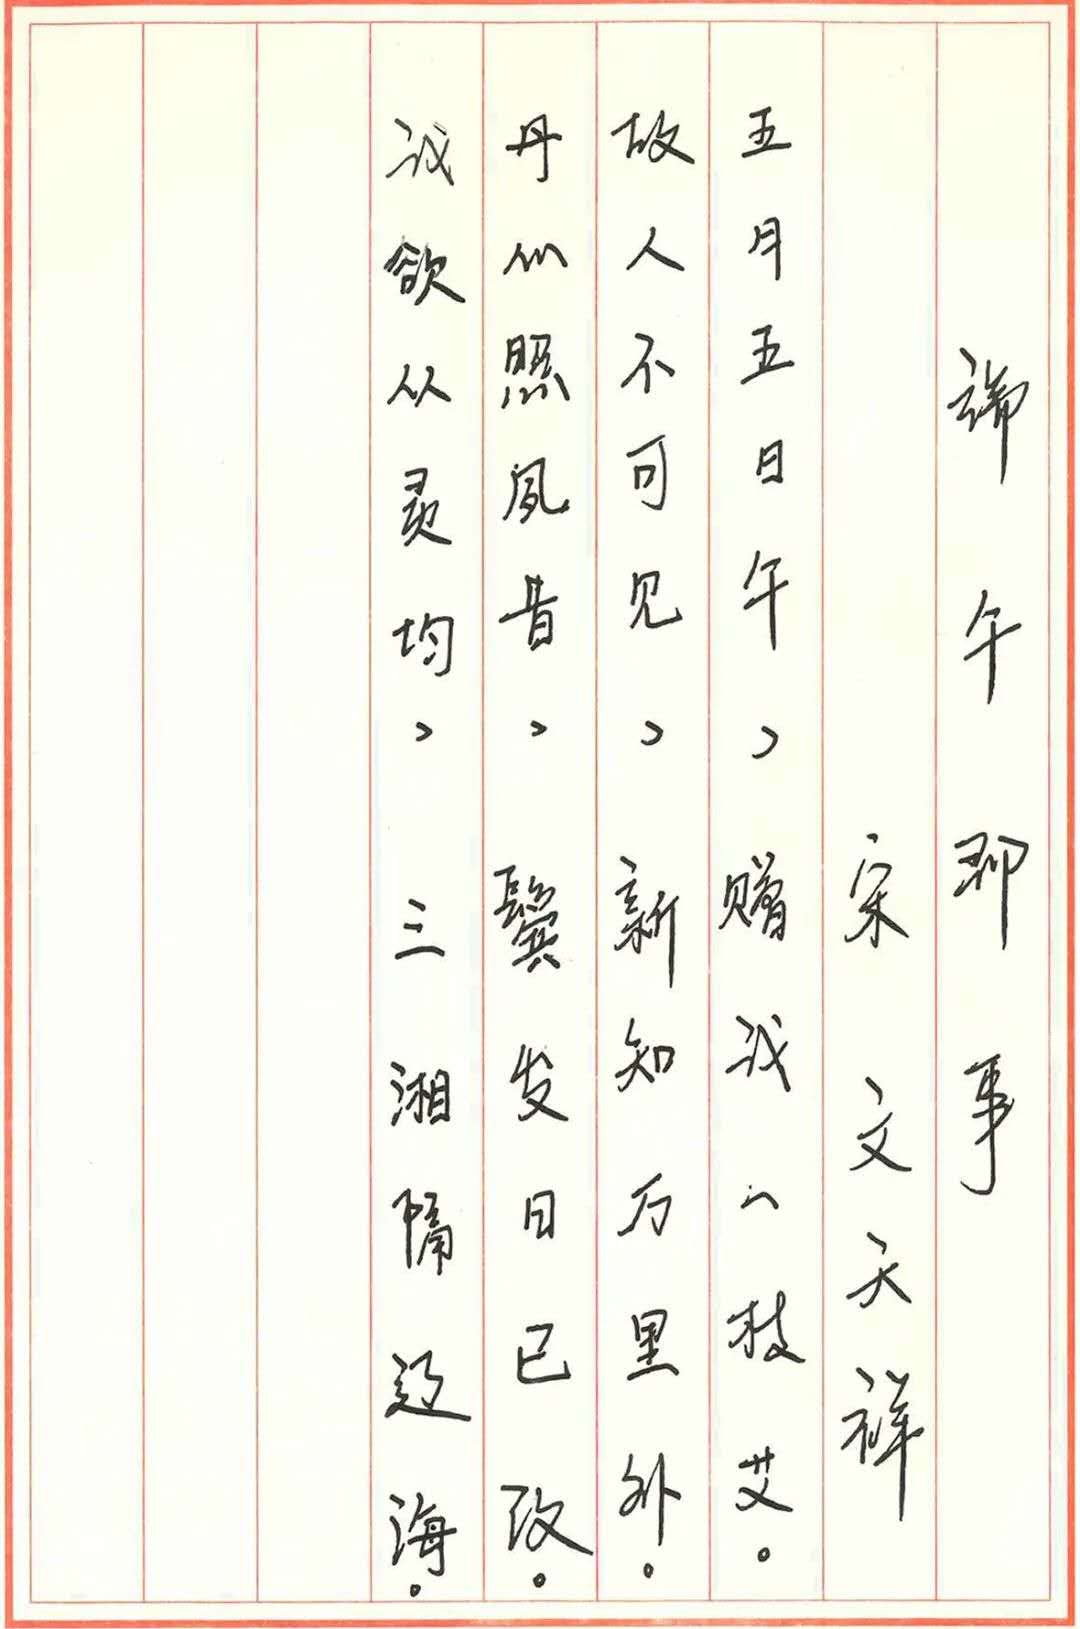 端午即事
宋 文天祥
五月五日午，赠我一枝艾。
故人不可见，新知万里外。
丹心照夙昔，鬓发日已改。
我欲从灵均，三湘隔辽海。